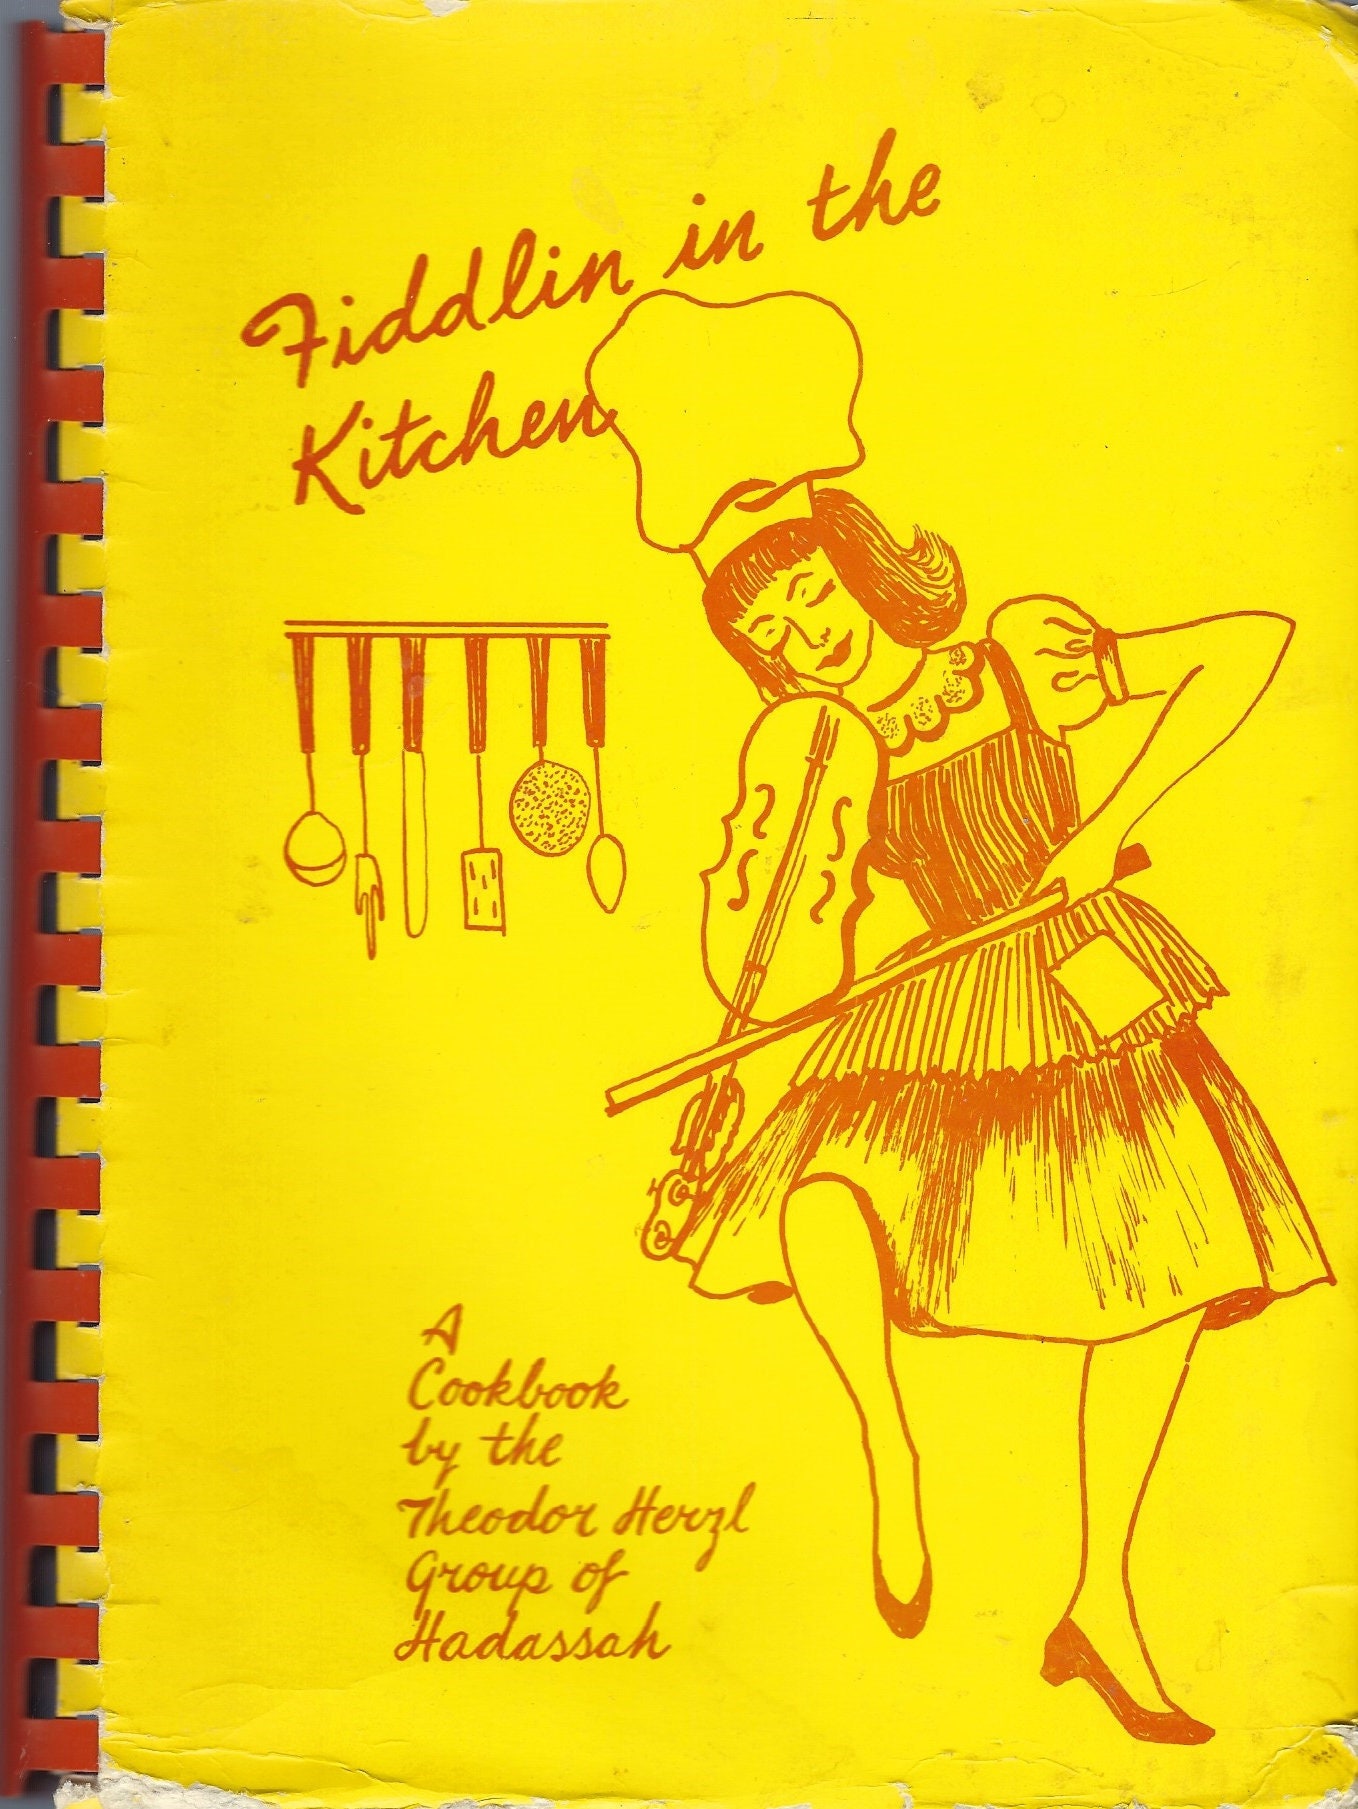 Fiddlin in the
Kitchen
A
Cookbook
by the
Theodor Herzl
Group of
Hadassah